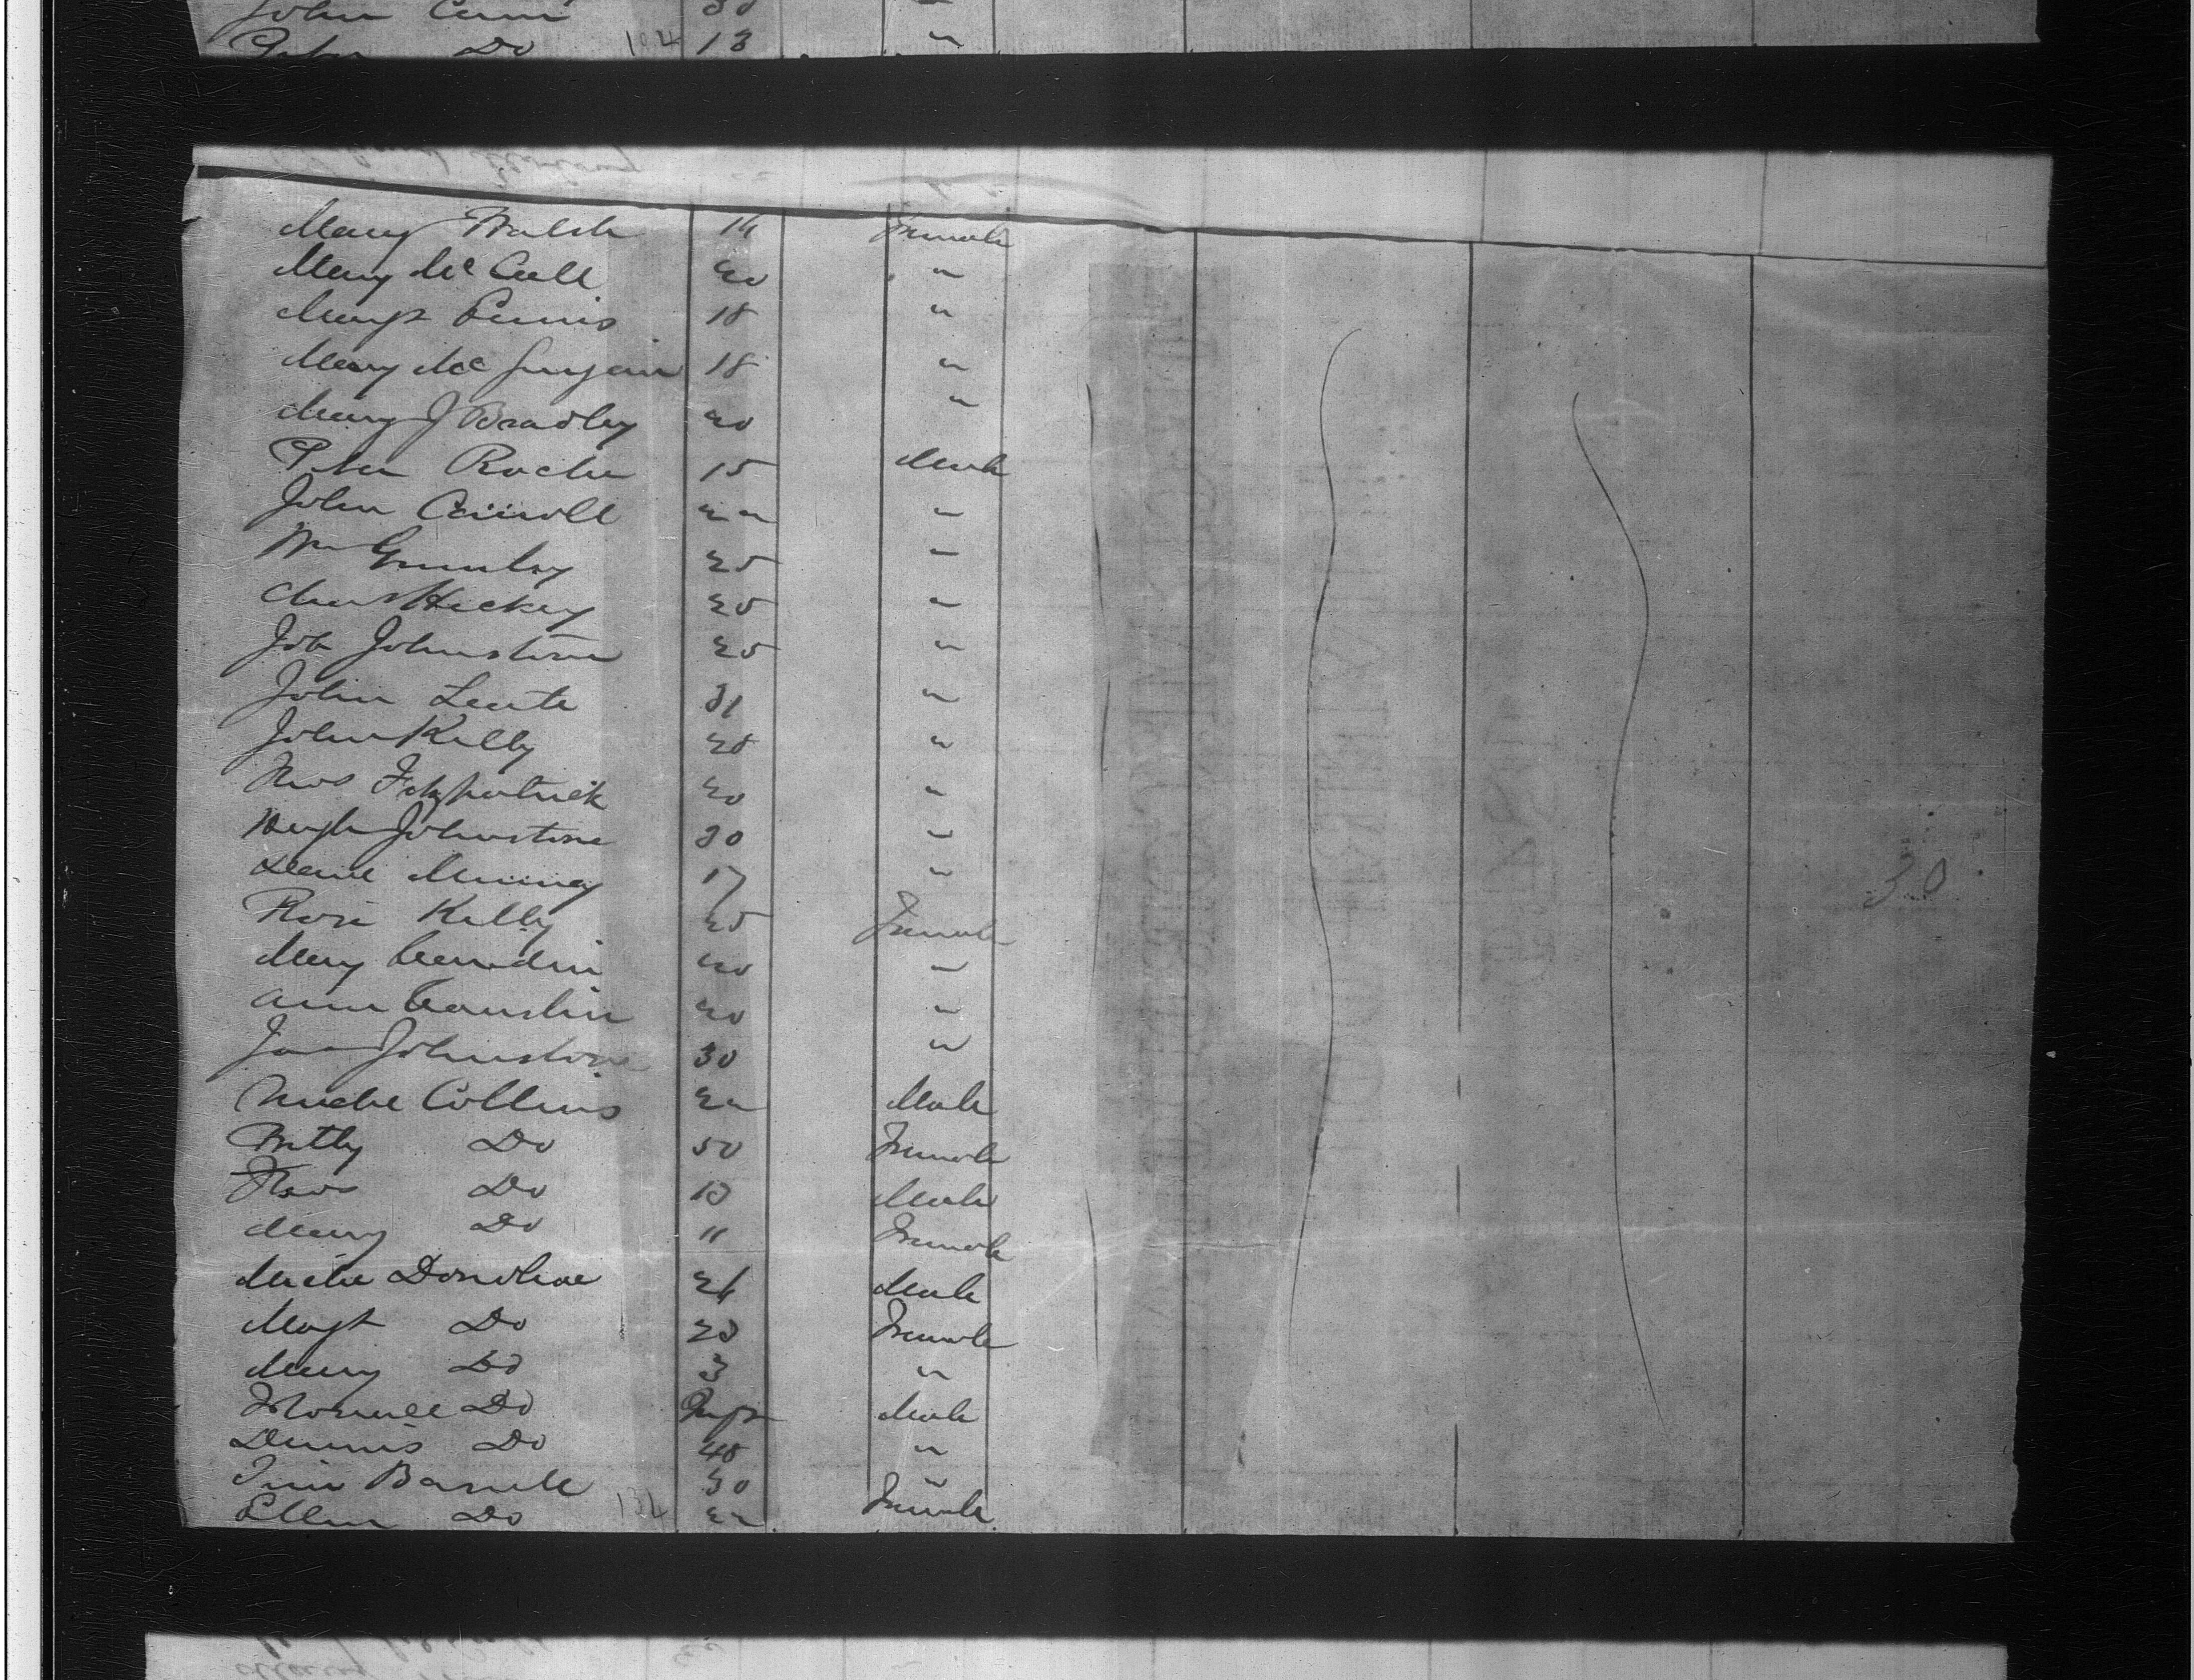 John 30
Peter Do 104 13 "
Mary Walsh 14 Female
Mary McCall 20 "
Margt Ennis 18 "
Mary Mc 18 "
Mary J Bradley 20 "
Peter Roche 15 Male
John Carroll 22 "
Wm Gormley 25 "
Chas Hickey 25 "
Job Johnstone 25 "
John 31 "
John Kelly 28 "
Thos Fitzpatrick 20 "
Hugh Johnstone 30 "
17 "
Rose Kelly 25 Female
Mary 20 "
Ann 20 "
Jane Johnstone 30 "
Michl Collins 22 Male
Do 50 Female
Thos Do 13 Male
Mary Do 11 Female
Michl Donohoe 26 Male
Magt Do 23 Female
Mary Do 3 "
Do Inft Male
Dennis Do 40 "
Tim 30 "
Ellen Do 134 22 Female
30